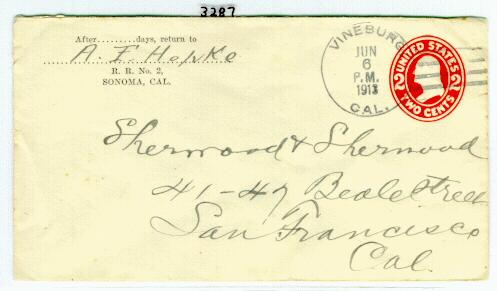 3287
After.........days, return to
R. R. No. 2,
SONOMA, CAL.
VINEBURG
JUN
6
P.M.
1913
CAL.
UNITED STATES
2 2
TWO CENTS
Sherwood & Sherwood
41-47 Beale Street
San Francisco
Cal.